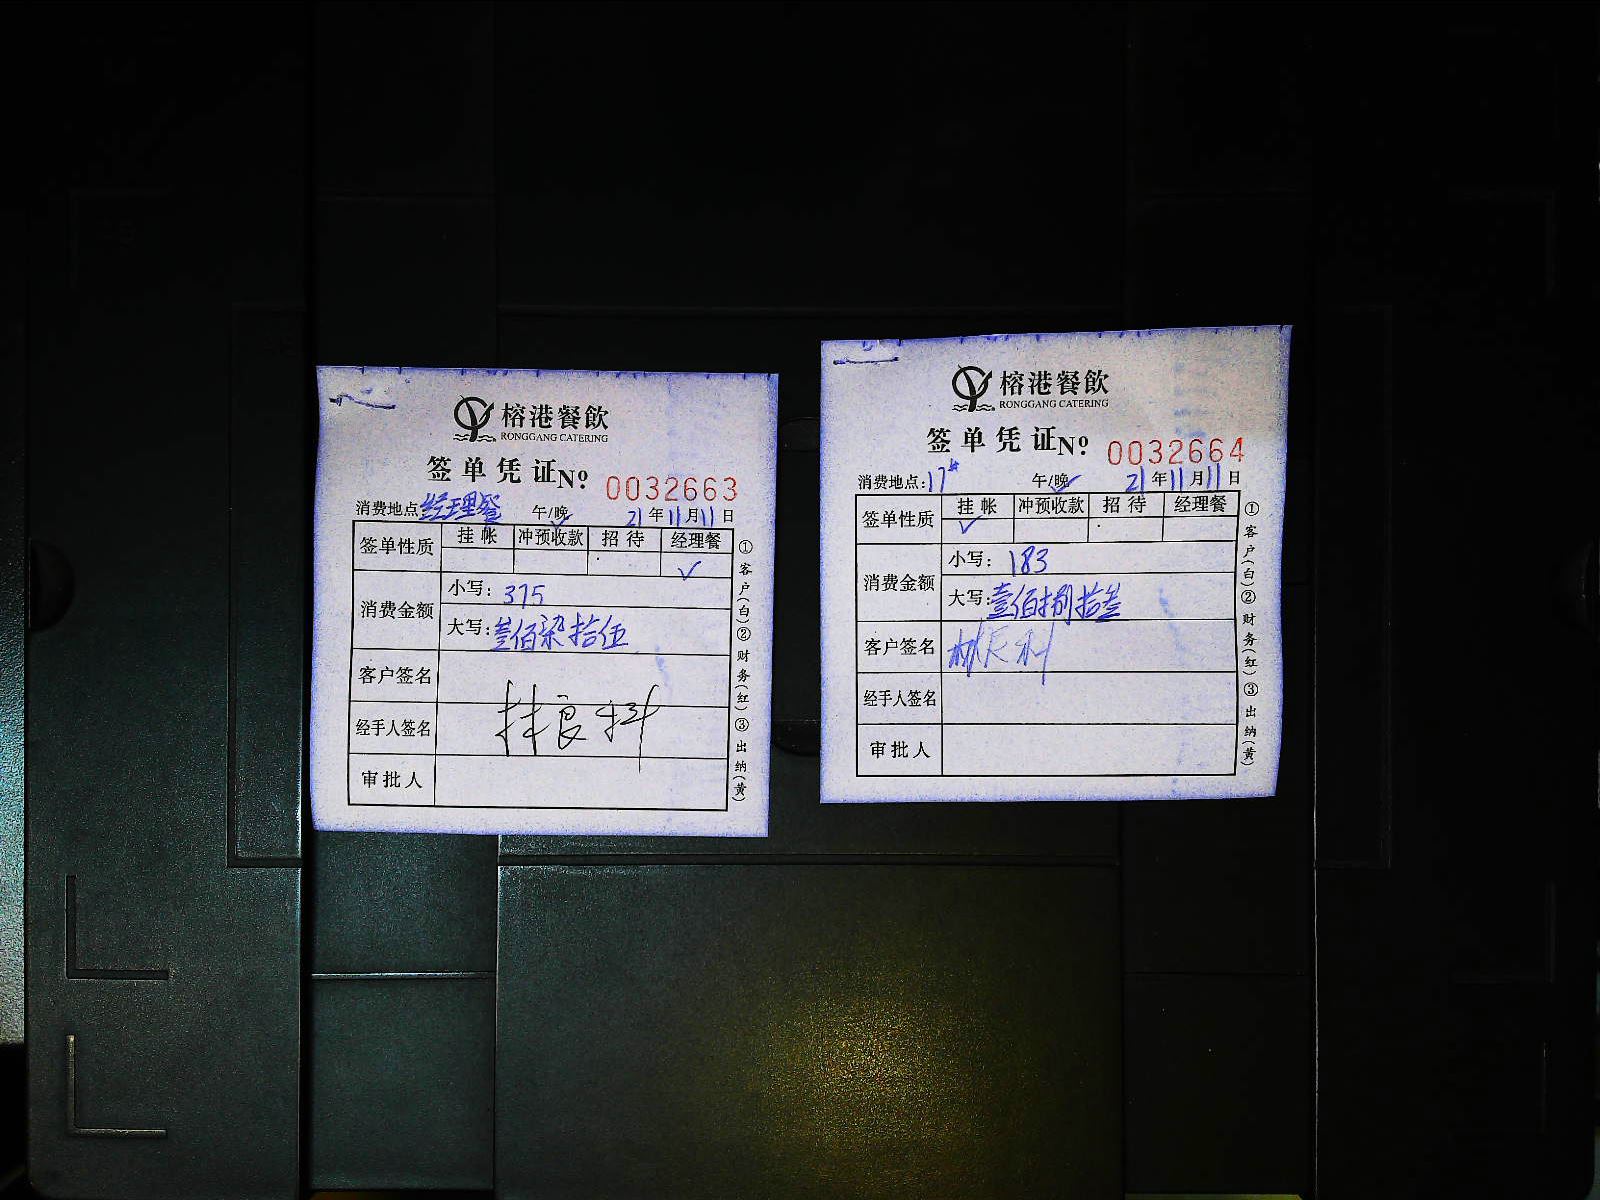 榕港餐飲
RONGGANG CATERING
签单凭证№ 0032663
消费地点:经理餐 午/晚 21年11月11日
签单性质 挂帐 冲预收款 招待 经理餐
✓
消费金额 小写: 375
大写: 叁佰柒拾伍
客户签名
经手人签名 林良科
审批人
①客户(白)②财务(红)③出纳(黄)
榕港餐飲
RONGGANG CATERING
签单凭证№ 0032664
消费地点:17# 午/晚 21年11月11日
签单性质 挂帐 冲预收款 招待 经理餐
✓
消费金额 小写: 183
大写: 壹佰捌拾叁
客户签名
经手人签名
审批人
①客户(白)②财务(红)③出纳(黄)